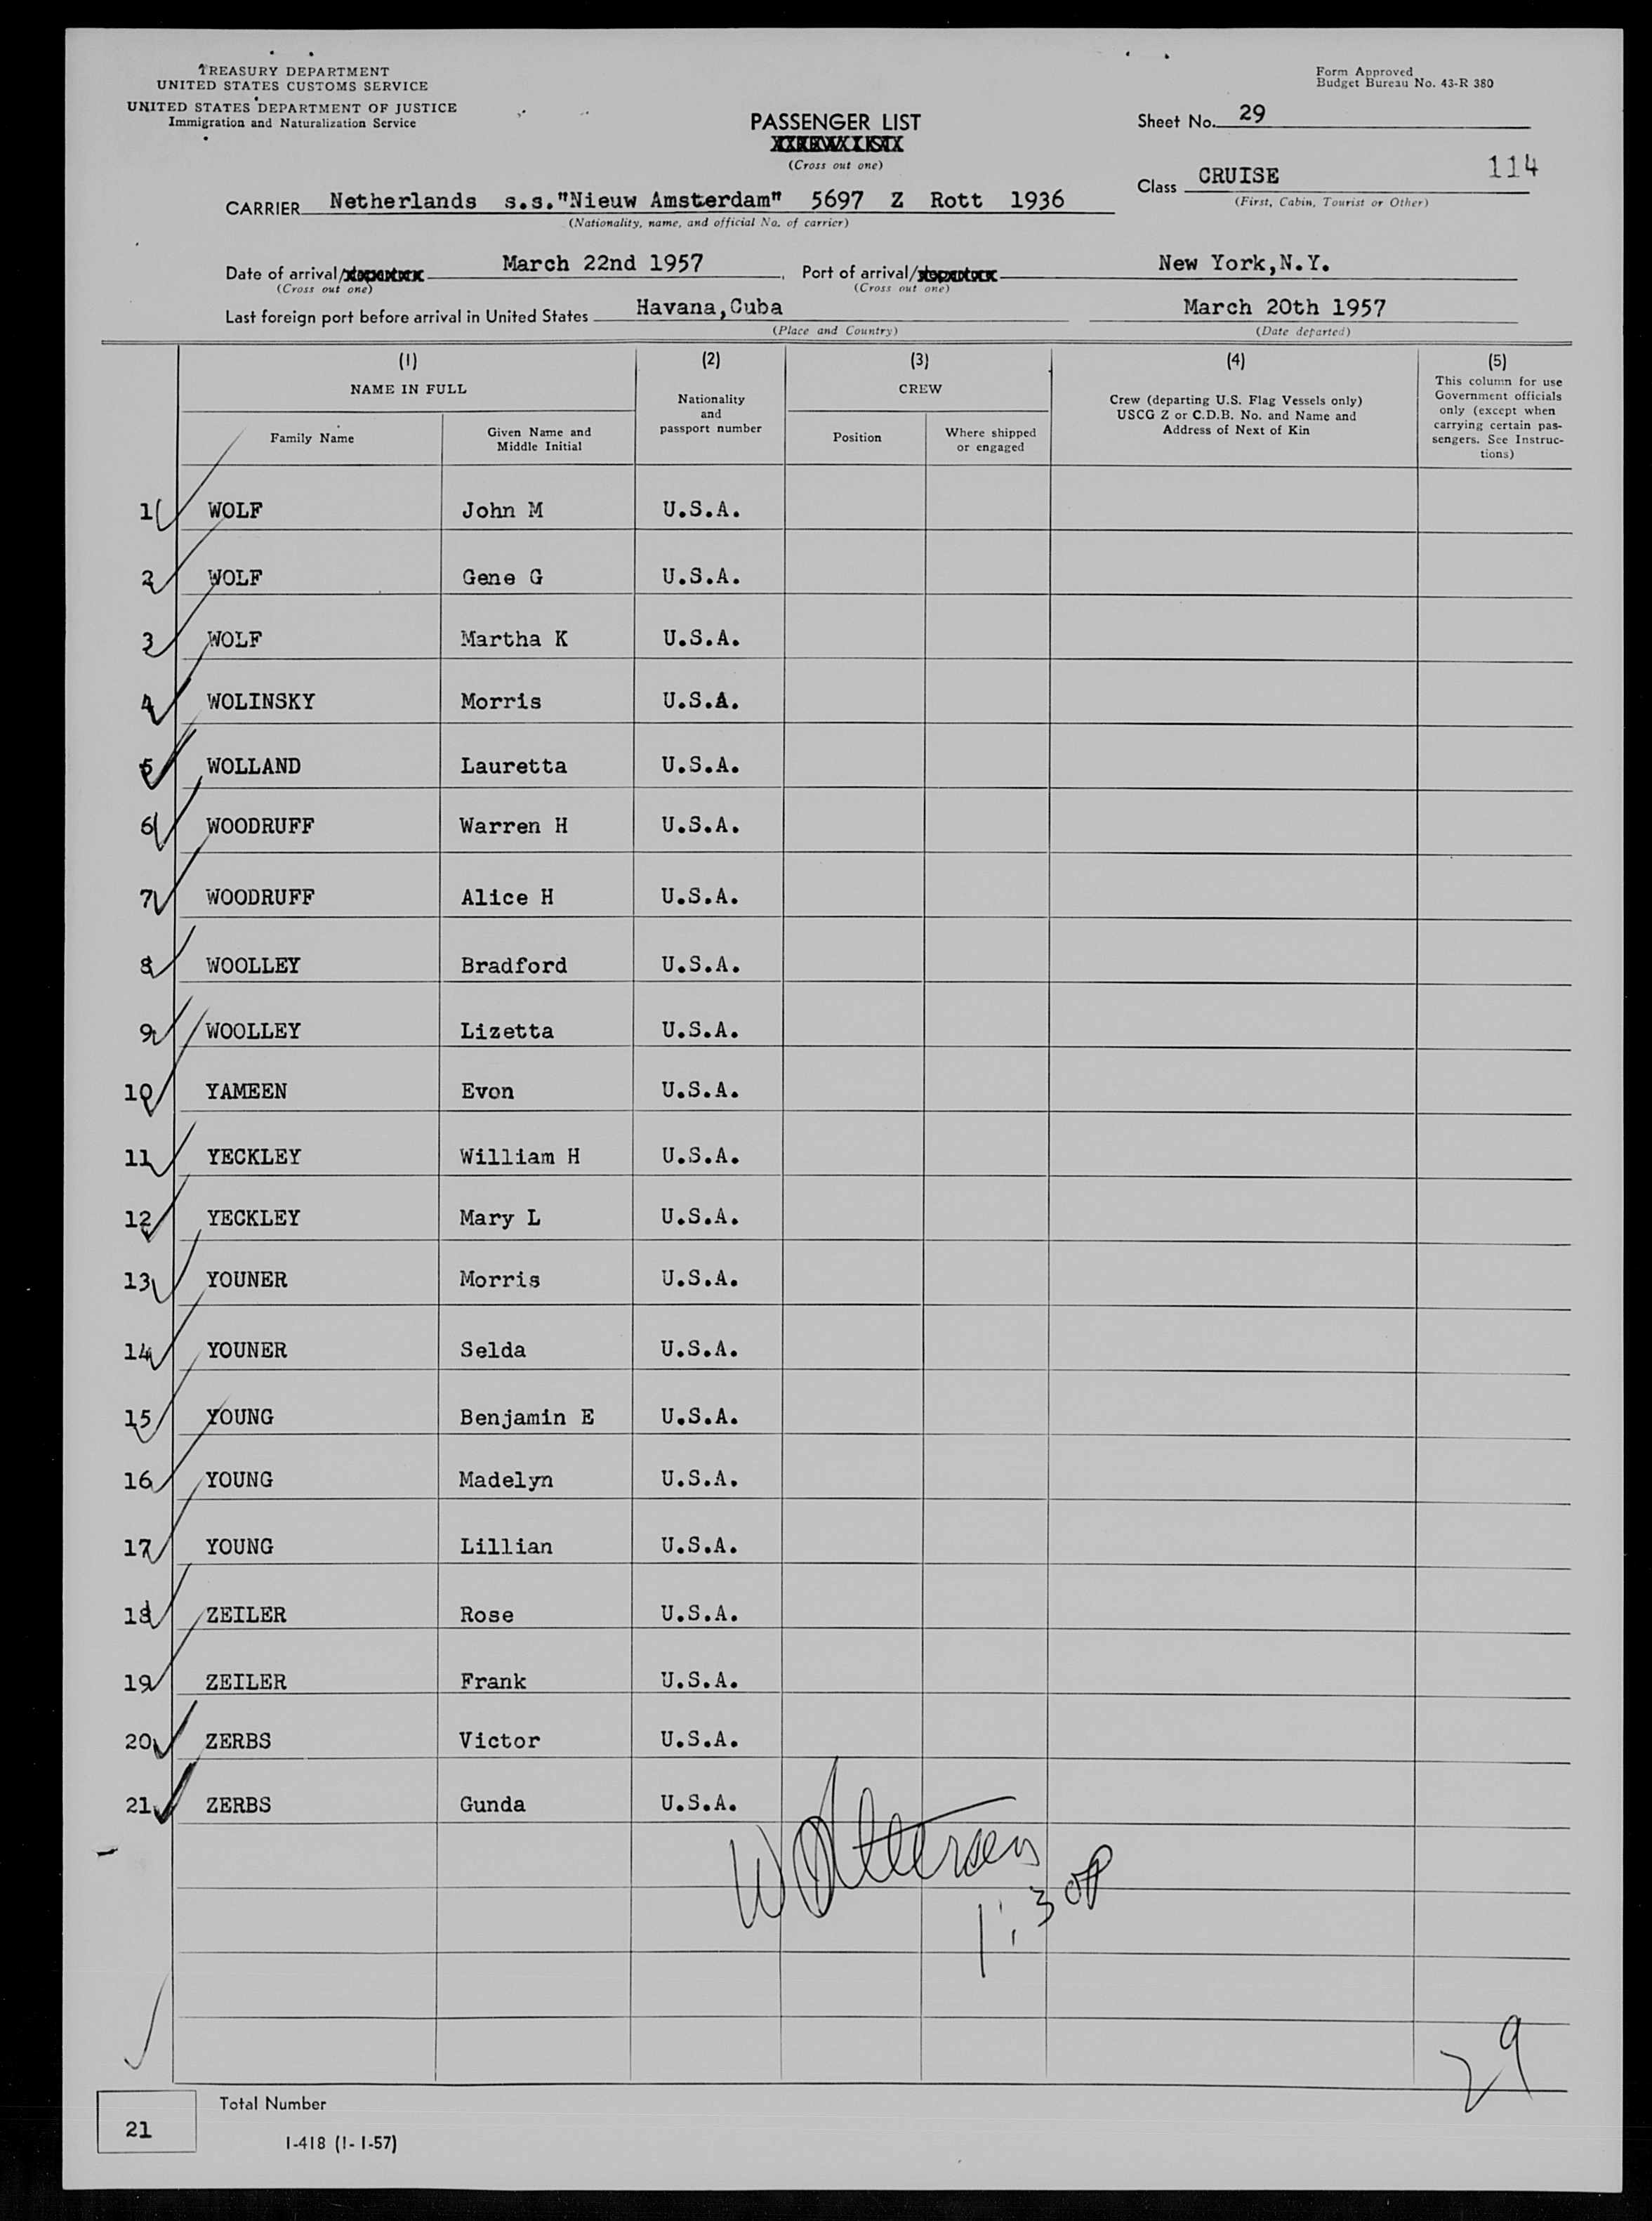 TREASURY DEPARTMENT
UNITED STATES CUSTOMS SERVICE
UNITED STATES DEPARTMENT OF JUSTICE
Immigration and Naturalization Service
Form Approved
Budget Bureau No. 43-R 380
PASSENGER LIST
(Cross out one)
Sheet No. 29
Class CRUISE 114
(First, Cabin, Tourist or Other)
CARRIER Netherlands s.s."Nieuw Amsterdam" 5697 Z Rott 1936
(Nationality, name, and official No. of carrier)
Date of arrival/ March 22nd 1957 Port of arrival/ New York,N.Y.
(Cross out one) (Cross out one)
Last foreign port before arrival in United States Havana,Cuba March 20th 1957
(Place and Country) (Date departed)
(1) (2) (3) (4) (5)
NAME IN FULL
Family Name
Given Name and
Middle Initial
Nationality
and
passport number
CREW
Position
Where shipped
or engaged
Crew (departing U.S. Flag Vessels only)
USCG Z or C.D.B. No. and Name and
Address of Next of Kin
This column for use
Government officials
only (except when
carrying certain pas-
sengers. See Instruc-
tions)
1 WOLF John M U.S.A.
2 WOLF Gene G U.S.A.
3 WOLF Martha K U.S.A.
4 WOLINSKY Morris U.S.A.
5 WOLLAND Lauretta U.S.A.
6 WOODRUFF Warren H U.S.A.
7 WOODRUFF Alice H U.S.A.
8 WOOLLEY Bradford U.S.A.
9 WOOLLEY Lizetta U.S.A.
10 YAMEEN Evon U.S.A.
11 YECKLEY William H U.S.A.
12 YECKLEY Mary L U.S.A.
13 YOUNER Morris U.S.A.
14 YOUNER Selda U.S.A.
15 YOUNG Benjamin E U.S.A.
16 YOUNG Madelyn U.S.A.
17 YOUNG Lillian U.S.A.
18 ZEILER Rose U.S.A.
19 ZEILER Frank U.S.A.
20 ZERBS Victor U.S.A.
21 ZERBS Gunda U.S.A.
1:30P
29
Total Number
21
I-418 (1-1-57)